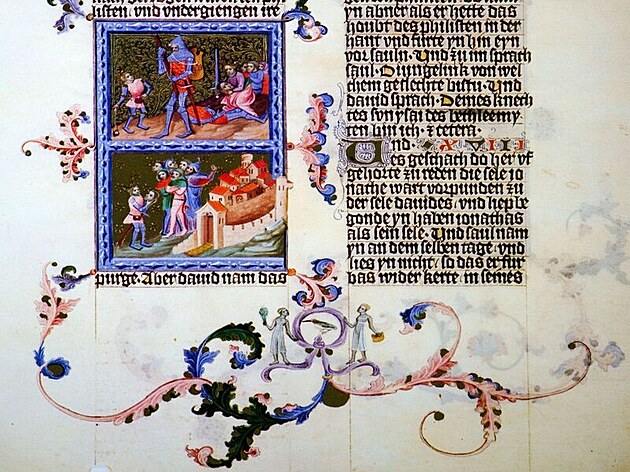 listen. vnd vndergiengen ire
purge. Aber dauid nam das
yn abner als er hette das
houbt des philisten in der
hant vnd furte yn hin eyn
vor saulin. Vnd zu im sprach
saul. O iungelink von wel
chem geslechte bistu. Vnd
dauid sprach. Deines knech
tes von ysai des bethleemy
ren bin ich. z cetera.
Und XVIII
es geschach do her vf
gehorte zu reden die sele io
nathe wart vorpunden zu
der sele dauides. vnd hep be
gonde yn haben ionathas
als sein sele. Vnd saul nam
yn an dem selben tage. vnd
lies yn nicht. so das er fur
bas wider kerte in seines